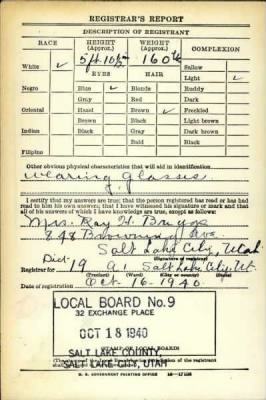 REGISTRAR'S REPORT
DESCRIPTION OF REGISTRANT
RACE HEIGHT (Approx.) WEIGHT (Approx.) COMPLEXION
5 ft 10½ 160
White ✓ Sallow
EYES HAIR Light ✓
Negro Blue ✓ Blonde Ruddy
Gray Red Dark
Oriental Hazel Brown ✓ Freckled
Brown Black Light brown
Indian Black Gray Dark brown
Bald Black
Filipino
Other obvious physical characteristics that will aid in identification
wearing glasses
I certify that my answers are true; that the person registered has read or has had
read to him his own answers; that I have witnessed his signature or mark and that
all of his answers of which I have knowledge are true, except as follows:
Mrs. Ray H.
848 Ave
Salt Lake City, Utah
(Signature of registrar)
Registrar for Dist- 19 A1 Salt Lake City, Ut.
(Precinct) (Ward) (City or county) (State)
Date of registration Oct. 16. 1940
LOCAL BOARD No. 9
32 EXCHANGE PLACE
OCT 18 1940
(STAMP OF LOCAL BOARD)
SALT LAKE COUNTY,
of the registrant
SALT LAKE CITY, UTAH
U. S. GOVERNMENT PRINTING OFFICE